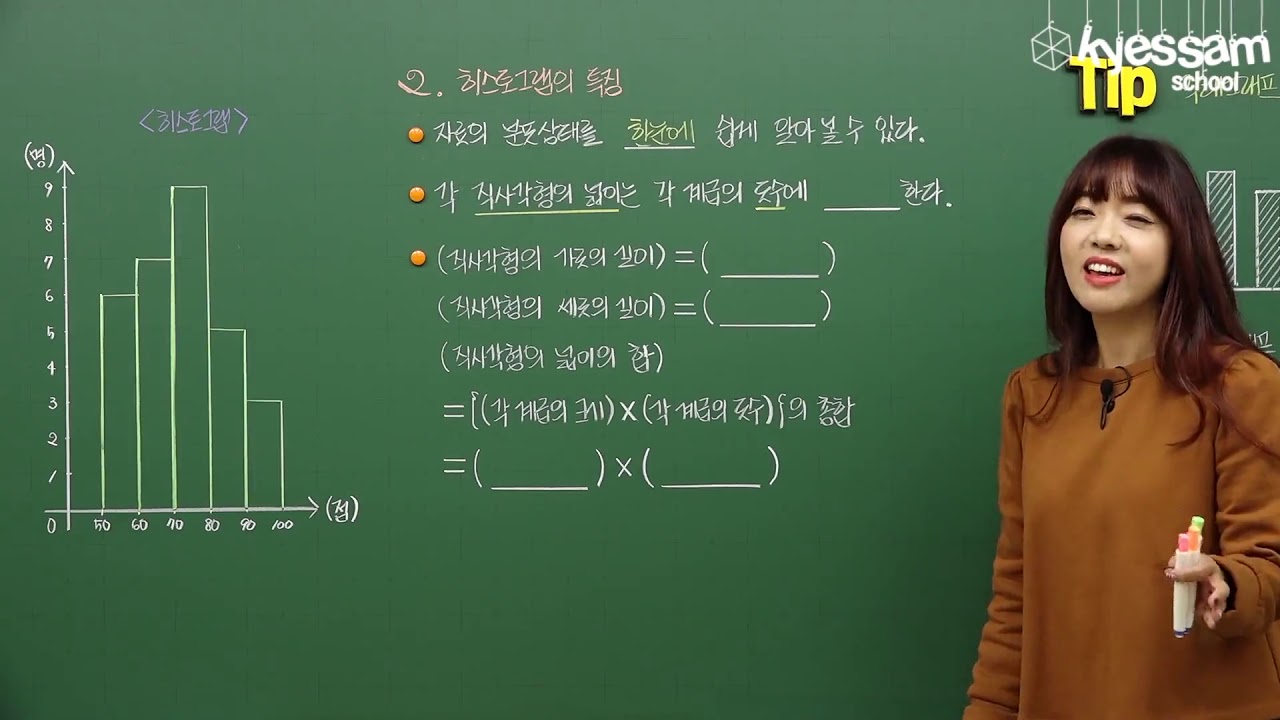 kyessam
school
Tip
2. 히스토그램의 특징
자료의 분포상태를 한눈에 쉽게 알아볼 수 있다.
각 직사각형의 넓이는 각 계급의 도수에 ______ 한다.
(직사각형의 가로의 길이) = ( ______ )
(직사각형의 세로의 길이) = ( ______ )
(직사각형의 넓이의 합)
= {(각 계급의 크기) × (각 계급의 도수)}의 총합
= ( ______ ) × ( ______ )
<히스토그램>
(명)
9
8
7
6
5
4
3
2
1
0 50 60 70 80 90 100 (점)